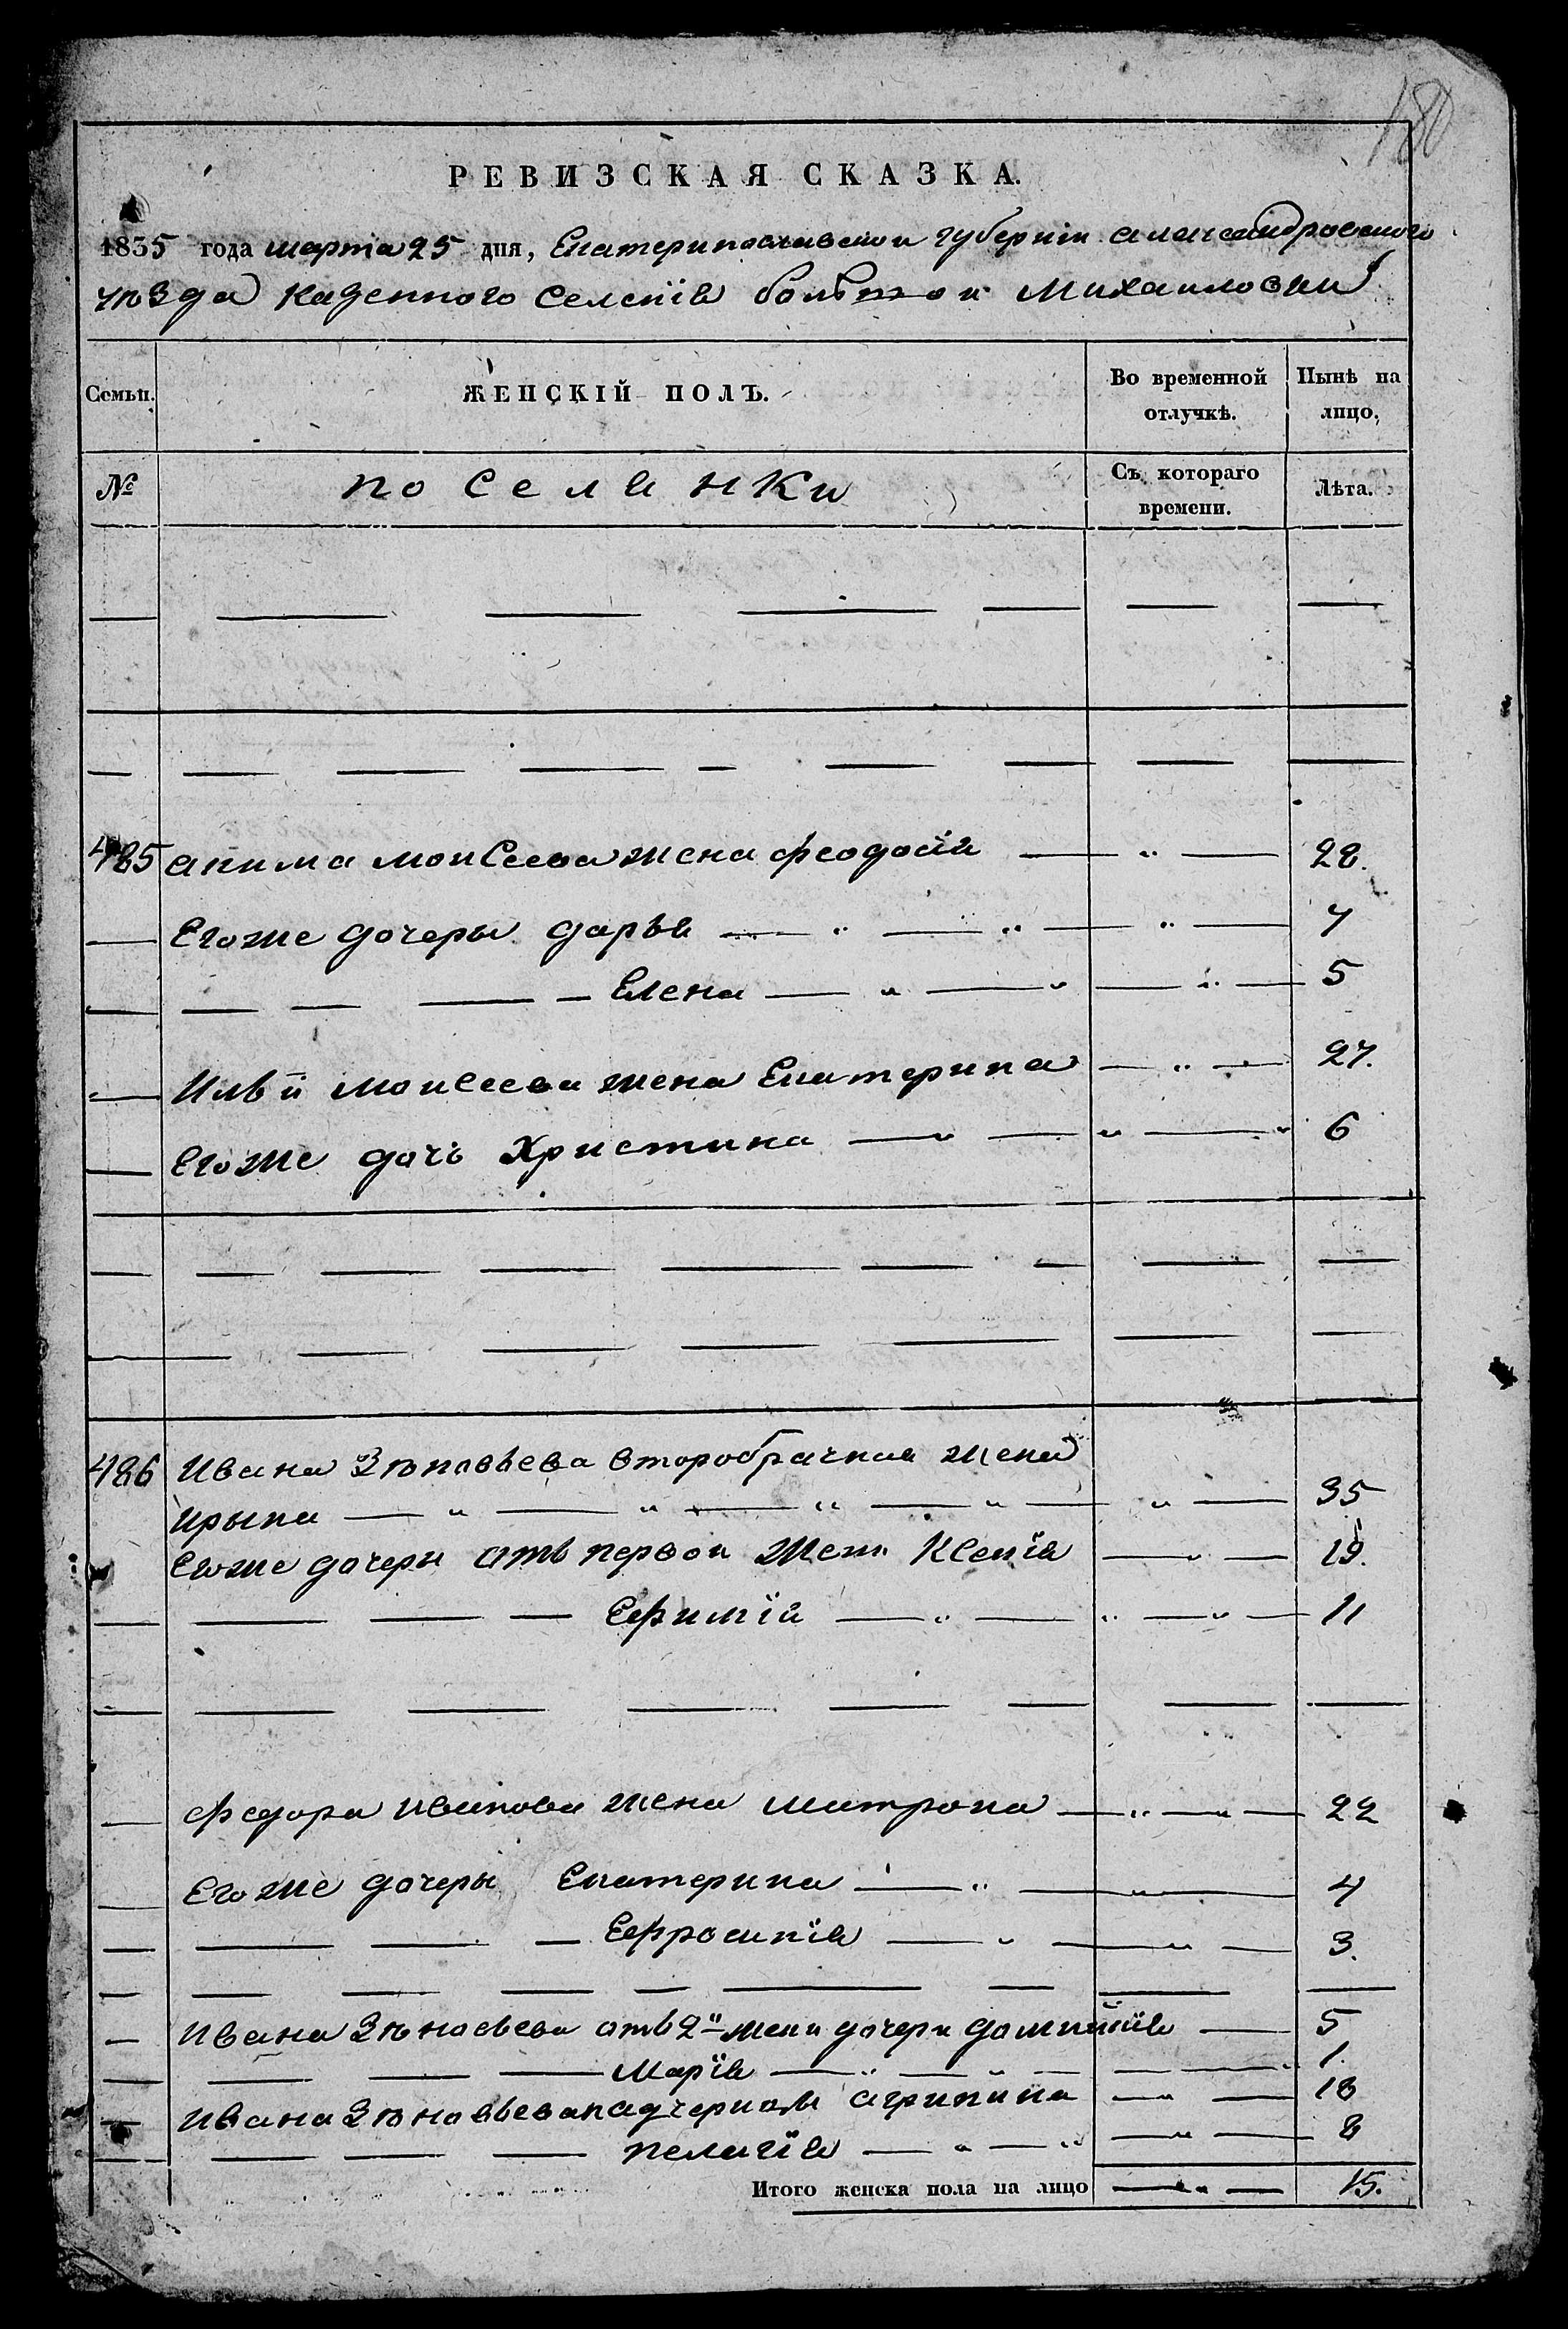 180
РЕВИЗСКАЯ СКАЗКА.
1835 года марта 25 дня, Екатеринославской губернiи Александровского
уѣзда казенного Селенiя большой Михаиловки
Семьи. ЖЕНСКIЙ ПОЛЪ. Во временной отлучкѣ. Нынѣ на лицо.
№ поселянки Съ котораго времени. Лѣта.
485 Акима Моисеева жена Феодосiя — " — 28.
Егоже дочеры Дарья — " — " — " — 7
Елена — " — " — " — 5
Ильи Моисеева жена Екатерина — " — 27.
Егоже дочь Христина — " — " — " 6
486 Ивана Зѣновьева второбрачная жена
Ирына — " — " — " — " — " — 35
Егоже дочеры отъ первой жены Ксенiя — " — 19.
Ефимiя — " — " — " — 11
Федора Иванова жена Матрона — " — " — 22
Егоже дочеры Екатерина — " — " — 4
Ефросинiя — " — " — 3.
Ивана Зѣновьева отъ 2й жены дочери Домникiя — 5
Марiя — " — " — " 1.
Ивана Зѣновьева падчерицы Агрипина — " — 18
Пелагiя — " — " — " — 8
Итого женска пола на лицо — " — 15.